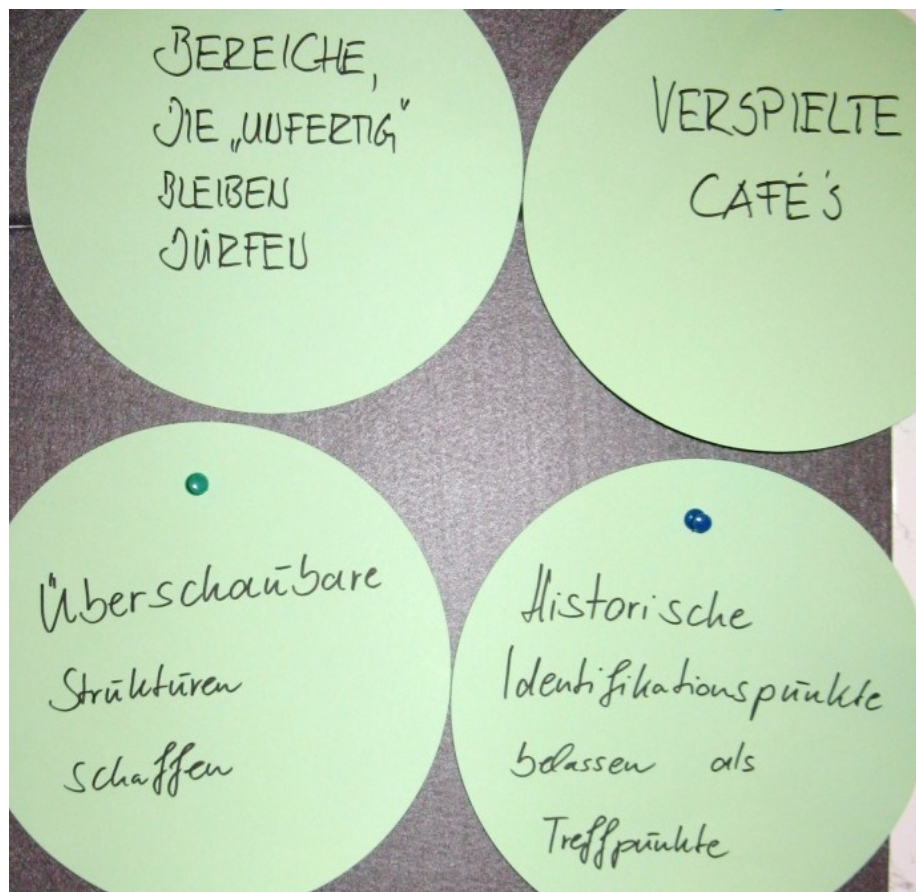 BEREICHE,
DIE „UNFERTIG“
BLEIBEN
DÜRFEN
VERSPIELTE
CAFÉ'S
Überschaubare
Strukturen
schaffen
Historische
Identifikationspunkte
belassen als
Treffpunkte